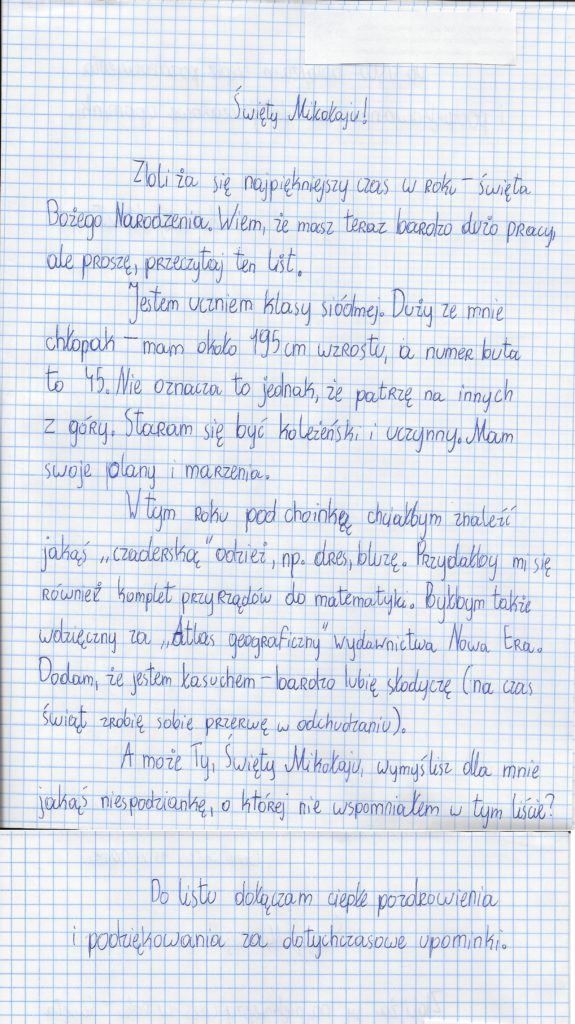 Święty Mikołaju!
Zbliża się najpiękniejszy czas w roku – święta
Bożego Narodzenia. Wiem, że masz teraz bardzo dużo pracy,
ale proszę, przeczytaj ten list.
Jestem uczniem klasy siódmej. Duży ze mnie
chłopak – mam około 195 cm wzrostu, a numer buta
to 45. Nie oznacza to jednak, że patrzę na innych
z góry. Staram się być koleżeński i uczynny. Mam
swoje plany i marzenia.
W tym roku pod choinkę chciałbym znaleźć
jakąś „czaderską” odzież, np. dres, bluzę. Przydałby mi się
również komplet przyrządów do matematyki. Byłbym także
wdzięczny za „Atlas geograficzny” wydawnictwa Nowa Era.
Dodam, że jestem łasuchem – bardzo lubię słodycze (na czas
świąt zrobię sobie przerwę w odchudzaniu).
A może Ty, Święty Mikołaju, wymyślisz dla mnie
jakąś niespodziankę, o której nie wspomniałem w tym liście?
Do listu dołączam ciepłe pozdrowienia
i podziękowania za dotychczasowe upominki.